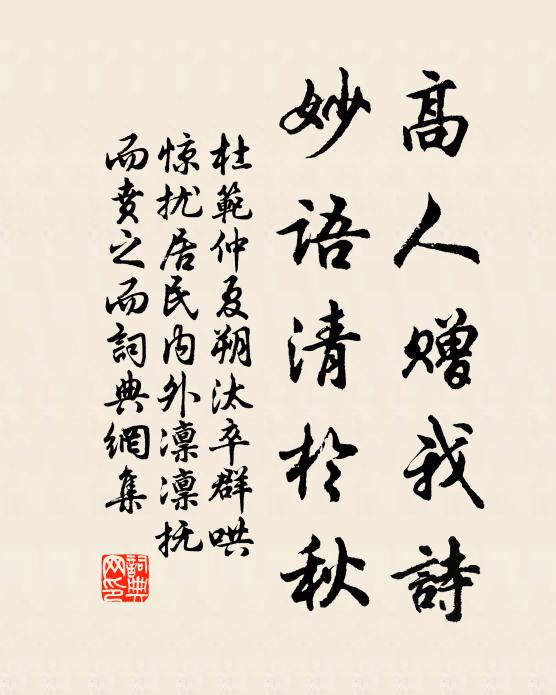 高人赠我詩
妙語清於秋
杜範仲夏朔汰卒群哄
惊扰居民内外凛凛抚
而賁之而詞典網集
詞典网印